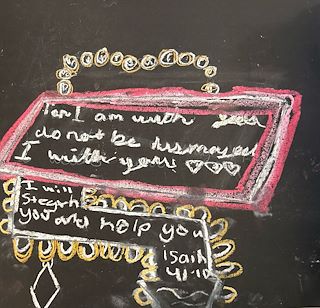 for I am with you
do not be dismayed
I will you
I will
Stegrh
you and help you
isaih
41:10